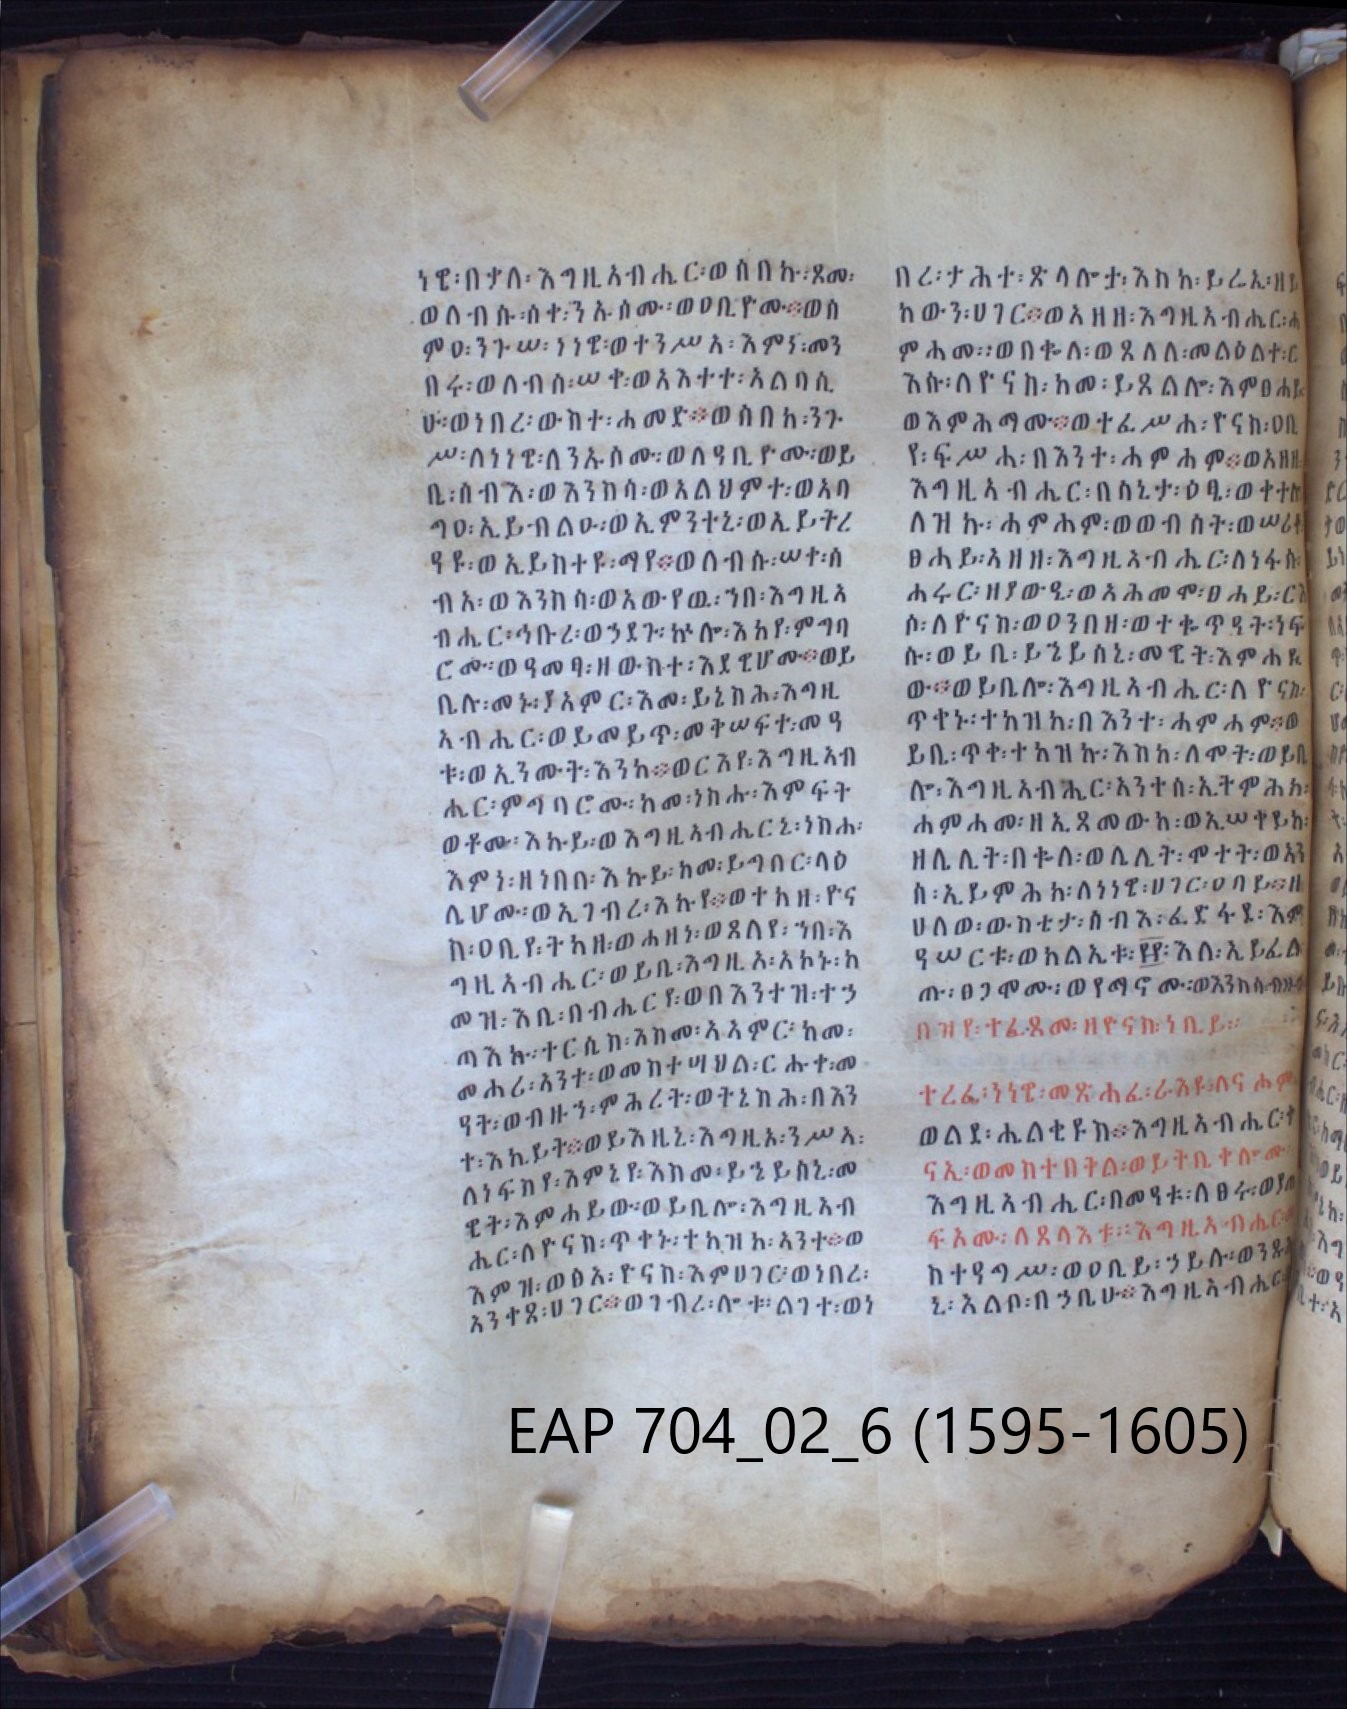 ነዌ፡በቃለ፡እግዚአብሔር፡ወሰበኩ፡ጾመ፡
ወለብሱ፡ሰቀ፡ንኡሶሙ፡ወዐቢዮሙ፨ወሰ
ምዐ፡ንጉሠ፡ነነዌ፡ወተንሥአ፡እምነ፡መን
በሩ፡ወለብሰ፡ሠቀ፡ወአእተተ፡አልባሲ
ሁ፡ወነበረ፡ውስተ፡ሐመድ፨ወሰበከ፡ንጉ
ሥ፡ለነነዌ፡ለንኡሶሙ፡ወለዓቢዮሙ፡ወይ
ቤ፡ሰብእ፡ወእንስሳ፡ወአልህምት፡ወአባ
ግዐ፡ኢይብልዑ፡ወኢምንተኒ፡ወኢይትረ
ዓዩ፡ወኢይስተዩ፡ማየ፨ወለብሱ፡ሠቀ፡ሰ
ብአ፡ወእንስሳ፡ወአውየዉ፡ኀበ፡እግዚአ
ብሔር፡ኅቡረ፡ወኃደጉ፡ኵሎ፡እከየ፡ምግባ
ሮሙ፡ወዓመፃ፡ዘውስተ፡እደዊሆሙ፨ወይ
ቤሉ፡መኑ፡ያአምር፡እመ፡ይኔስሕ፡እግዚ
አብሔር፡ወይመይጥ፡መቅሠፍተ፡መዓ
ቱ፡ወኢንሙት፡እንከ፨ወርእየ፡እግዚአብ
ሔር፡ምግባሮሙ፡ከመ፡ነስሑ፡እምፍት
ወቶሙ፡እኩይ፡ወእግዚአብሔርኒ፡ነስሐ፡
እምነ፡ዘነበበ፡እኩይ፡ከመ፡ይግበር፡ላዕ
ሌሆሙ፡ወኢገብረ፡እኩየ፨ወተከዘ፡ዮና
ስ፡ዐቢየ፡ትካዘ፡ወሐዘነ፡ወጸለየ፡ኀበ፡እ
ግዚአብሔር፡ወይቤ፡እግዚአ፡አኮኑ፡ከ
መዝ፡እቤ፡በብሔርየ፡ወበእንተዝ፡ተኃ
ጣእኩ፡ተርሴስ፡እስመ፡አአምር፡ከመ፡
መሐሪ፡አንተ፡ወመስተሣህል፡ርሑቀ፡መ
ዓት፡ወብዙኀ፡ምሕረት፡ወትኔስሕ፡በእን
ተ፡እኪይት፨ወይእዜኒ፡እግዚአ፡ንሥአ፡
ለነፍስየ፡እምኔየ፡እስመ፡ይኄይሰኒ፡መ
ዊት፡እምሐይው፡ወይቤሎ፡እግዚአብ
ሔር፡ለዮናስ፡ጥቀኑ፡ተከዝከ፡አንተ፨ወ
እምዝ፡ወፅአ፡ዮናስ፡እምሀገር፡ወነበረ፡
አንተጸ፡ሀገር፨ወገብረ፡ሎቱ፡ልገተ፡ወነ
በረ፡ታሕተ፡ጽላሎታ፡እስከ፡ይሬኢ፡ዘይ
ከውን፡ሀገር፨ወአዘዘ፡እግዚአብሔር፡ሐ
ምሐመ፡፡ወበቈለ፡ወጸለለ፡መልዕልተ፡ር
እሱ፡ለዮናስ፡ከመ፡ይጸልሎ፡እምፀሐይ
ወእምሕማሙ፨ወተፈሥሐ፡ዮናስ፡ዐቢ
የ፡ፍሥሐ፡በእንተ፡ሐምሐም፨ወአዘዘ
እግዚአብሔር፡በሰኒታ፡ዕፄ፡ወቀተ
ለዝኩ፡ሐምሐም፡ወወብሰት፡ወሠሪቆ
ፀሐይ፡አዘዘ፡እግዚአብሔር፡ለነፋስ፡
ሐሩር፡ዘያውዒ፡ወአሕመሞ፡ፀሐይ፡ርእ
ሶ፡ለዮናስ፡ወዐንበዘ፡ወተቈጥዓት፡ነፍ
ሱ፡ወይቤ፡ይኄይሰኒ፡መዊት፡እምሐዪ
ው፨ወይቤሎ፡እግዚአብሔር፡ለዮናስ፡
ጥቀኑ፡ተከዝከ፡በእንተ፡ሐምሐም፨ወ
ይቤ፡ጥቀ፡ተከዝኩ፡እስከ፡ለሞት፡ወይቤ
ሎ፡እግዚአብሔር፡አንተሰ፡ኢትምሕክ፡
ሐምሐመ፡ዘኢጻመውከ፡ወኢሠቀይከ፡
ዘሌሊት፡በቈለ፡ወሌሊት፡ሞተት፡ወአን
ሰ፡ኢይምሕክ፡ለነነዌ፡ሀገር፡ዐባይ፨ዘ
ሀለወ፡ውስቴታ፡ሰብእ፡ፈድፋዴ፡እም
ዓሠርቱ፡ወክልኤቱ፡፼፡እለ፡ኢይፈል
ጡ፡ፀጋሞሙ፡ወየማኖሙ፡ወእንስሳ፡ብዙኅ
በዝየ፡ተፈጸመ፡ዘዮናስ፡ነቢይ፡፡
ተረፈ፡ነነዌ፡መጽሐፈ፡ራእዩ፡ለናሖም
ወልደ፡ሔልቂዩስ፨እግዚአብሔር፡ቀ
ናኢ፡ወመስተበቅል፡ወይትቤቀሎሙ
እግዚአብሔር፡በመዓቱ፡ለፀሩ፡ወያመ
ፍኦሙ፡ለጸላእቱ፡፡እግዚአብሔር፡መ
ስተዓግሥ፡ወዐቢይ፡ኃይሉ፡ወንጹሕ
ኒ፡አልቦ፡በኃቤሁ፨እግዚአብሔር
EAP 704_02_6 (1595-1605)